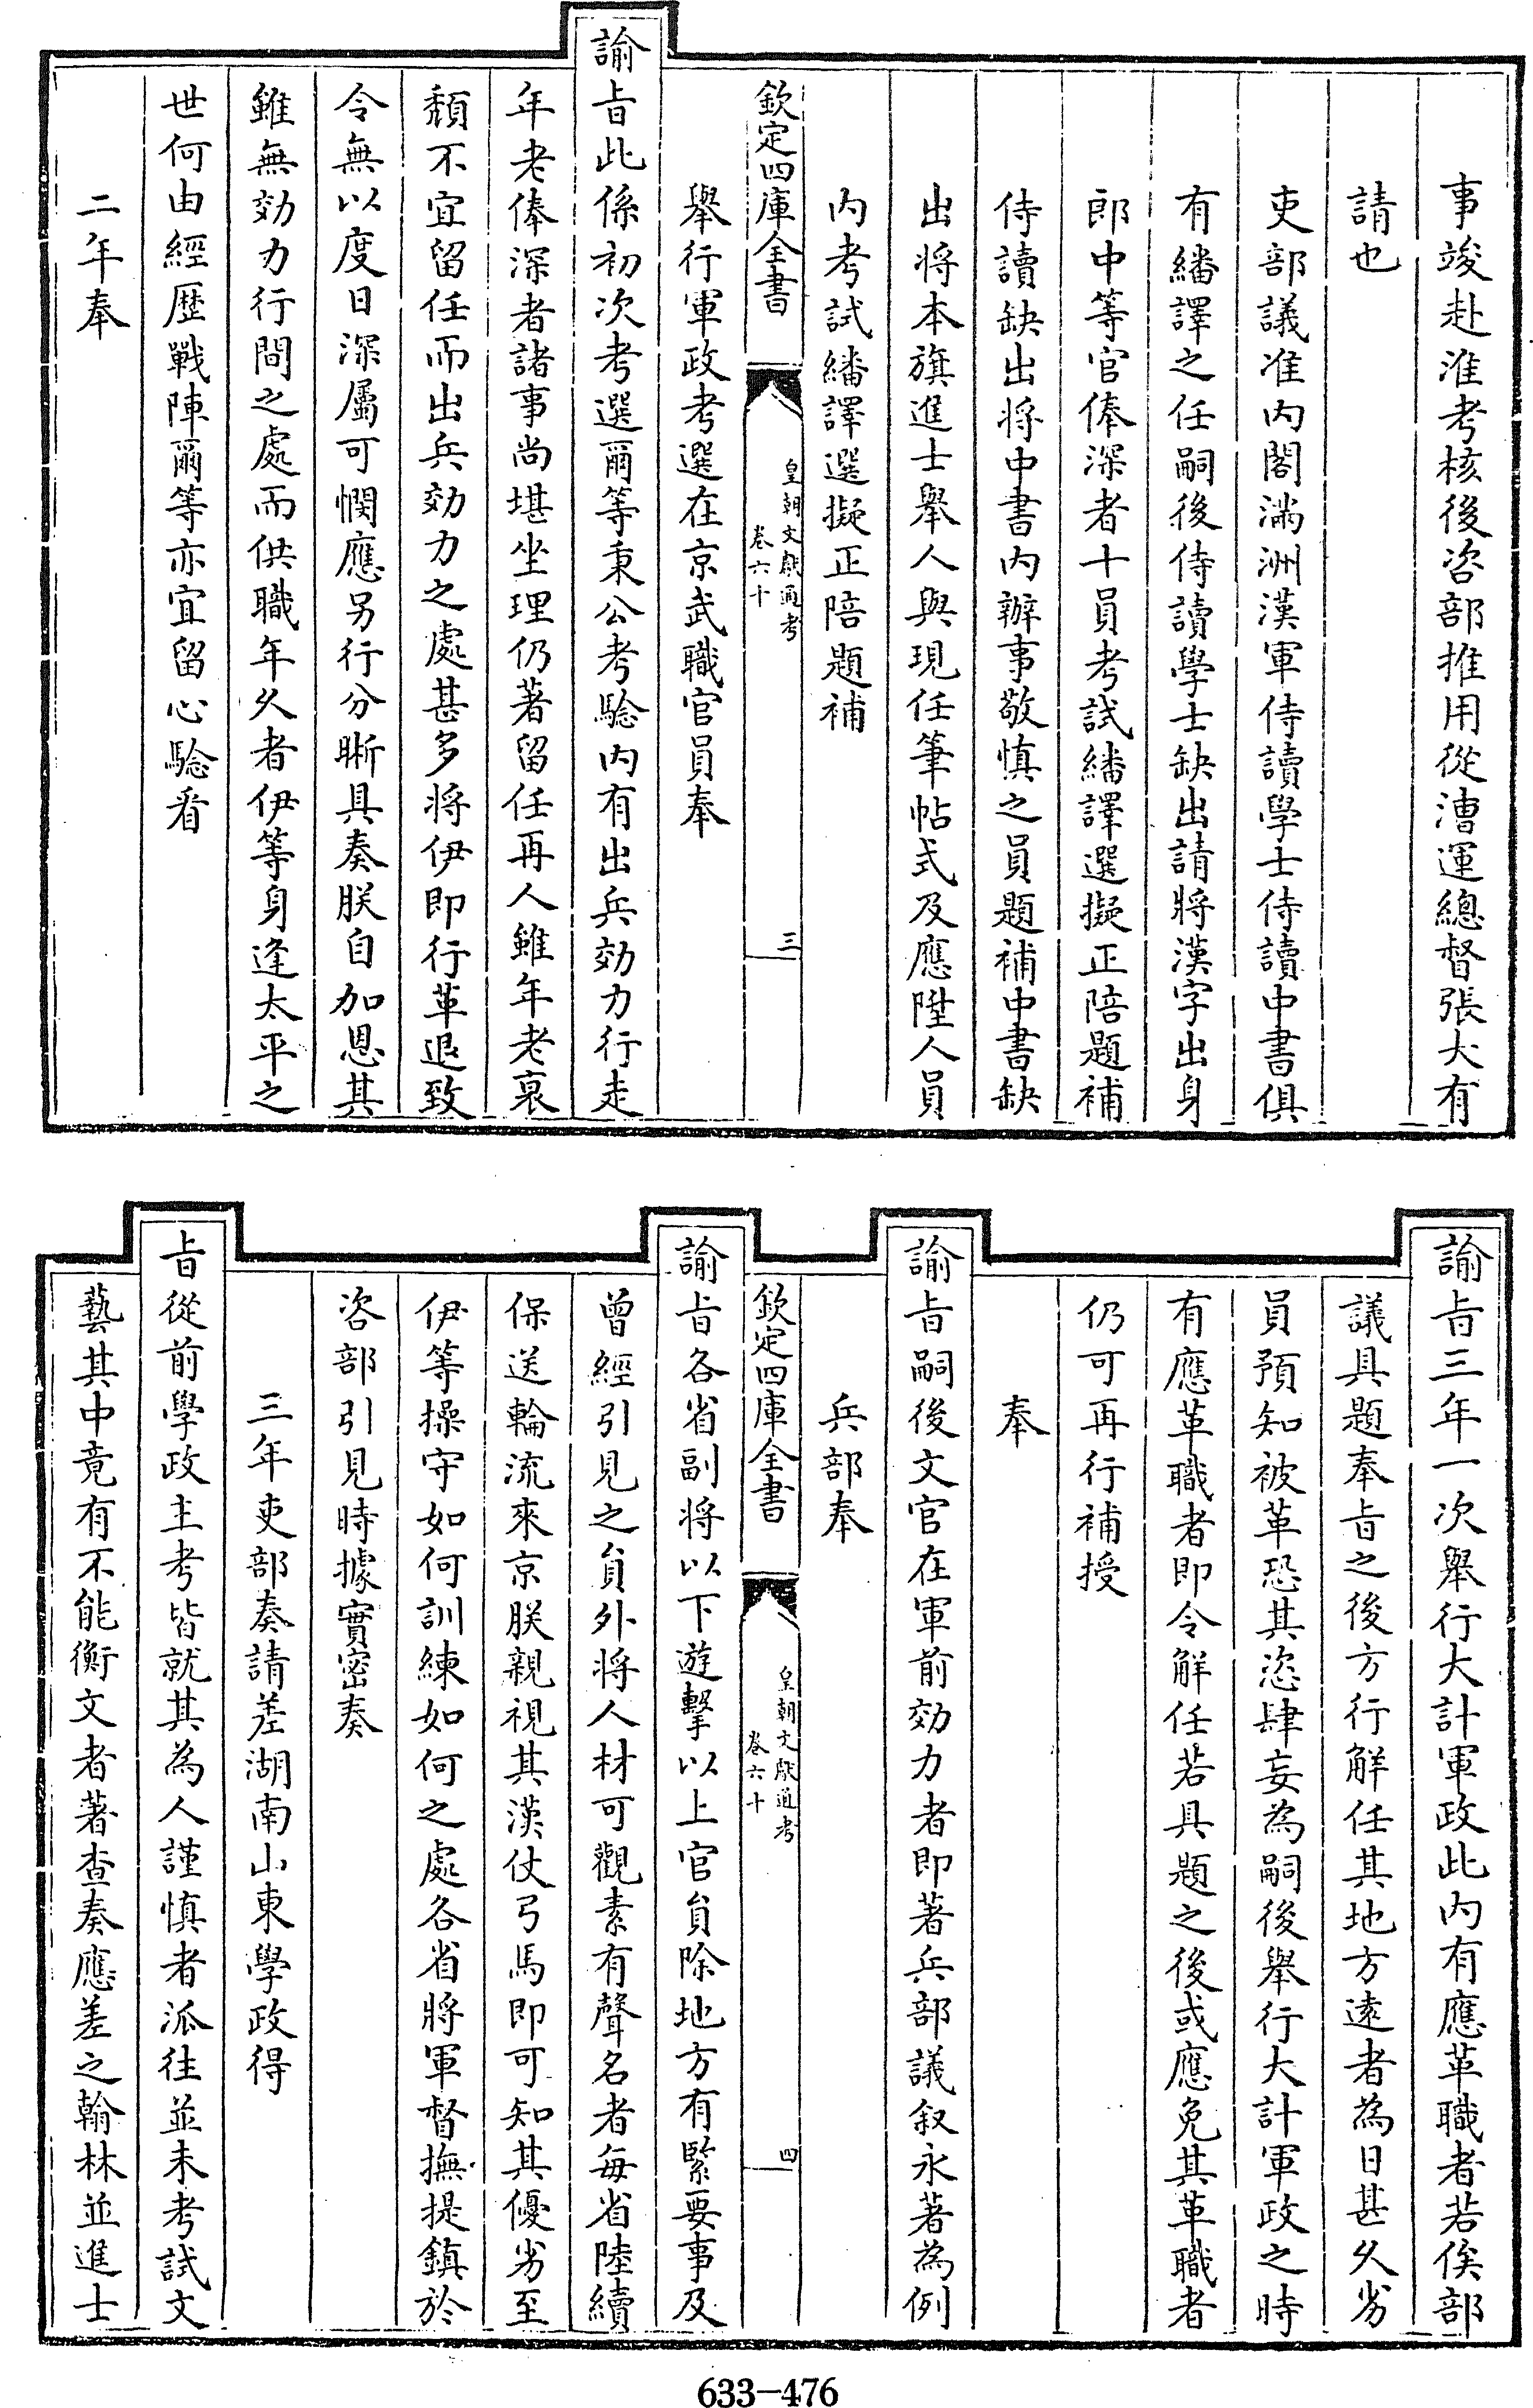 事竣赴淮考核後咨部推用從漕運總督張大有
請也
吏部議准内閣滿洲漢軍侍讀學士侍讀中書俱
有繙譯之任嗣後侍讀學士缺出請將漢字出身
郎中等官俸深者十員考試繙譯選擬正陪題補
侍讀缺出將中書内辦事敬慎之員題補中書缺
出將本旗進士舉人與現任筆帖式及應陞人員
内考試繙譯選擬正陪題補
欽定四庫全書
皇朝文獻通考
卷六十
三
舉行軍政考選在京武職官員奉
諭旨此係初次考選爾等秉公考驗内有出兵効力行走
年老俸深者諸事尚堪坐理仍著留任再人雖年老衰
頹不宜留任而出兵効力之處甚多將伊即行革退致
令無以度日深屬可憫應另行分晰具奏朕自加恩其
雖無効力行間之處而供職年久者伊等身逢太平之
世何由經歴戰陣爾等亦宜留心驗看
二年奉
諭旨三年一次舉行大計軍政此内有應革職者若俟部
議具題奉旨之後方行解任其地方遠者為日甚久劣
員預知被革恐其恣肆妄為嗣後舉行大計軍政之時
有應革職者即令解任若具題之後或應免其革職者
仍可再行補授
奉
諭旨嗣後文官在軍前効力者即著兵部議叙永著為例
兵部奉
欽定四庫全書
皇朝文獻通考
卷六十
四
諭旨各省副將以下遊擊以上官員除地方有緊要事及
曾經引見之員外將人材可觀素有聲名者毎省陸續
保送輪流來京朕親視其漢仗弓馬即可知其優劣至
伊等操守如何訓練如何之處各省將軍督撫提鎮於
咨部引見時據實密奏
三年吏部奏請差湖南山東學政得
旨從前學政主考皆就其為人謹慎者派往並未考試文
藝其中竟有不能衡文者著查奏應差之翰林並進士
633-476